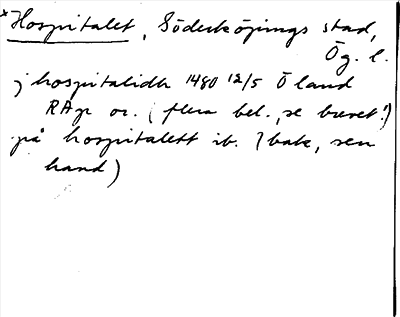 *Hospitalet, Söderköpings stad,
Ög. l.
j hospitalidh 1480 12/5 Öland
RAp or. (flera bel., se brevet!)
på hospitalett ib. (bak, sen
hand)